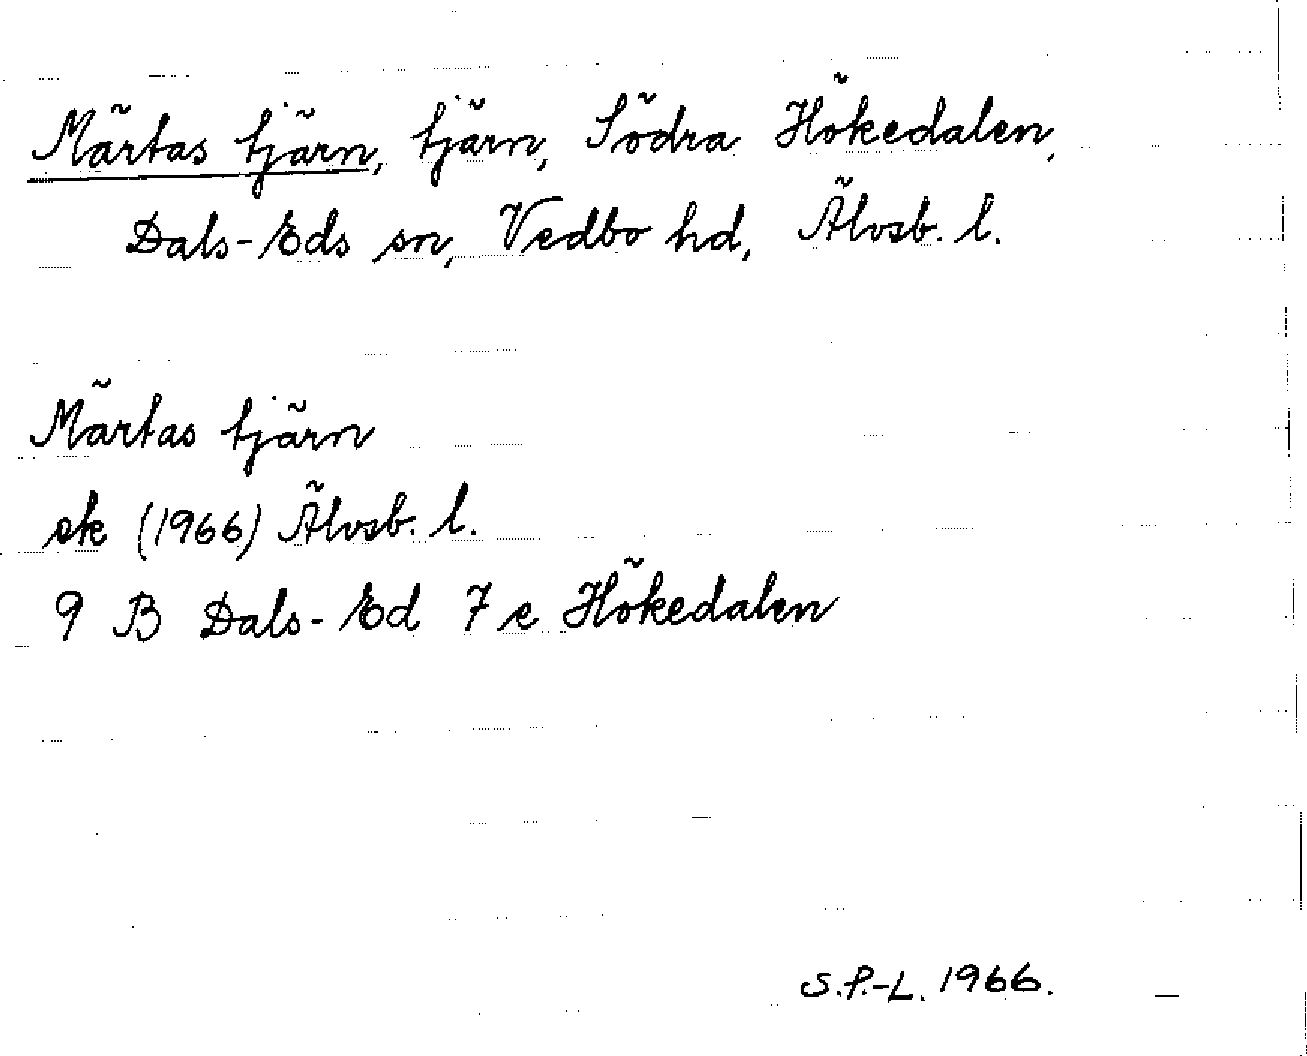 Märtas tjärn, tjärn, Södra Hökedalen,
Dals-Eds sn, Vedbo hd, Älvsb. l.
Märtas tjärn
ek (1966) Älvsb. l.
9 B Dals-Ed 7 e Hökedalen
S.P.-L. 1966.